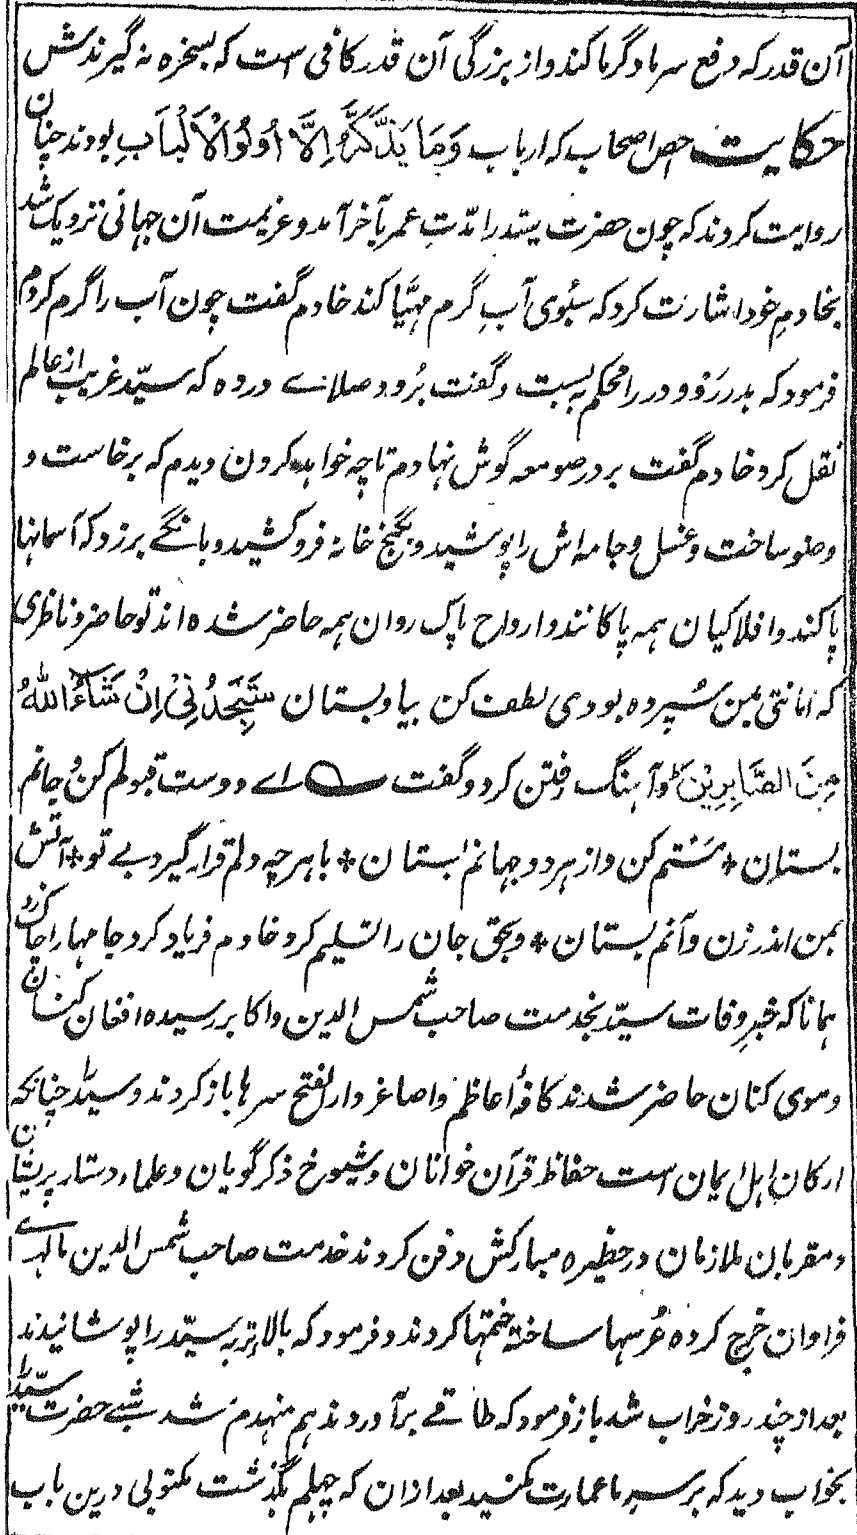 آن قدر که دفع سرما و گرما کند و از بزرگی آن قدر کافی است که بسخره نه گیرندش
حکایت اخص اصحاب که ارباب وَمَا يَذَّكَّرُ اِلَّا اُولُوا الْاَلْبَابِ بودند چنان
روایت کردند که چون حضرت سیّد را مدّتِ عمر بآخر آمد و عزیمت آن جهانی نزدیک شد
بخادمِ خود اشارت کرد که سبُوی آبِ گرم مهیّا کند خادم گفت چون آب را گرم کردم
فرمود که بدر رَو و در را محکم به بست و گفت بُرو و صلاے در ده که سیّد غریب از عالم
نقل کرد خادم گفت بر در صومعه گوش نهادم تا چه خواهد کردن دیدم که برخاست و
وضو ساخت و غسل و جامه اش را پوشید و بگنج خانه فرو کشید و بانگے برزد که آسمانها
پاکند و افلاکیان همه پاکانند و ارواح پاک روان همه حاضر شده اند تو حاضر و ناظری
که امانتی بمن سُپرده بودی لطف کن بیا و بستان سَتَجِدُنِیْ اِنْ شَآءَ اللّٰهُ
مِنَ الصَّابِرِيْنَ و آهنگ رفتن کرد و گفت اے دوست قبولم کن و جانم
بستان * مستم کن و از هر دو جهانم بستان * با هر چه دلم قرار گیرد بے تو * آتش
بمن اندر زن و آنم بستان * و بحق جان را تسلیم کرد خادم فریاد کرد و جامها را چاک زد
همانا که خبرِ وفات سیّد بخدمت صاحب شمس الدین و اکابر رسیده افغان کنان
و موی کنان حاضر شدند کافهٔ اعاظم و اصاغر دار الفتح سرها باز کردند و سیّد را چنانکه
ارکانِ اهل ایمان است حفاظ قرآن خوانان و شیوخ ذکر گویان و علماء دستار پریشان
و مقربان ملازمان در حظیره مبارکش دفن کردند خدمت صاحب شمس الدین مالهاے
فراوان خرج کرده عُرسها ساخته ختمها کردند و فرمود که بالاء تربه سیّد را پوشانیدند
بعد از چند روز خراب شد باز فرمود که طاقے برآوردند هم منهدم شد شبے حضرت سیّد را
بخواب دید که بر سر ما عمارت مکنید بعد ازان که چهلم بگذشت مکتوبی درین باب